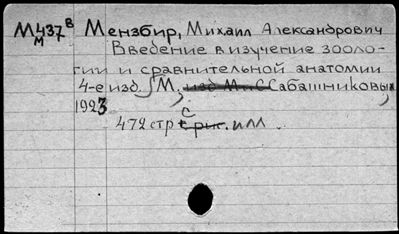 М437 В Мензбир, Михаил Александрович
М
Введение в изучение зооло-
гии и сравнительной анатомии
4-е изд. М., изд М. и С Сабашниковых,
1923
472 стр с рис. илл.